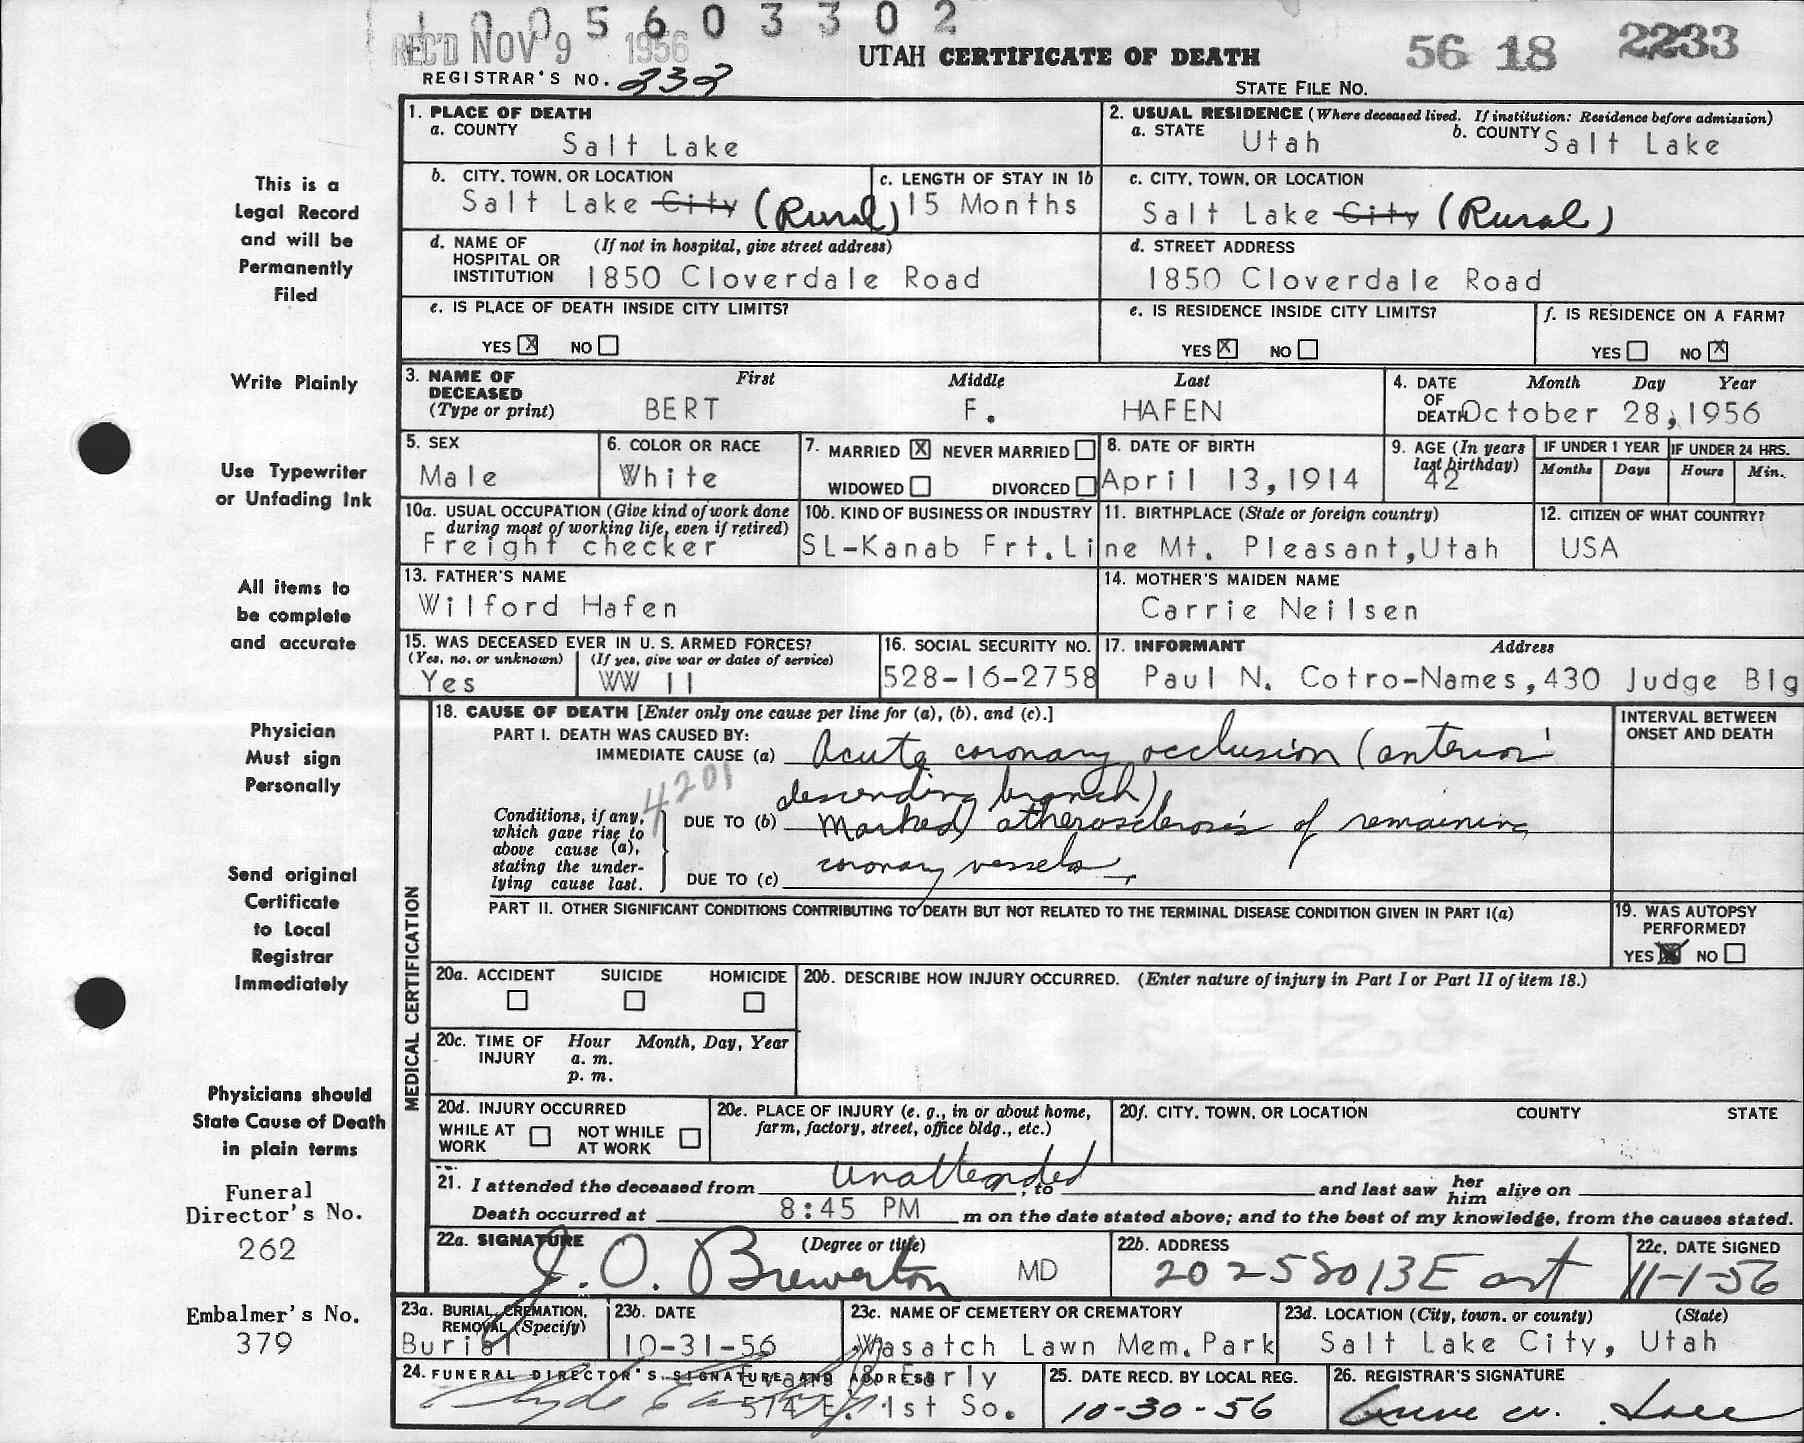 1 0 0 5 6 0 3 3 0 2
REC'D NOV 9 1956
UTAH CERTIFICATE OF DEATH
56 18 2233
REGISTRAR'S NO. 232
STATE FILE NO.
1. PLACE OF DEATH
a. COUNTY
Salt Lake
2. USUAL RESIDENCE (Where deceased lived. If institution: Residence before admission)
a. STATE Utah b. COUNTY Salt Lake
b. CITY, TOWN, OR LOCATION
Salt Lake City (Rural)
c. LENGTH OF STAY IN 1b
15 Months
c. CITY, TOWN, OR LOCATION
Salt Lake City (Rural)
d. NAME OF HOSPITAL OR INSTITUTION (If not in hospital, give street address)
1850 Cloverdale Road
d. STREET ADDRESS
1850 Cloverdale Road
e. IS PLACE OF DEATH INSIDE CITY LIMITS?
YES X NO
e. IS RESIDENCE INSIDE CITY LIMITS?
YES X NO
f. IS RESIDENCE ON A FARM?
YES NO X
3. NAME OF DECEASED (Type or print)
First Middle Last
BERT F. HAFEN
4. DATE OF DEATH Month Day Year
October 28, 1956
5. SEX
Male
6. COLOR OR RACE
White
7. MARRIED X NEVER MARRIED
WIDOWED DIVORCED
8. DATE OF BIRTH
April 13, 1914
9. AGE (In years last birthday)
42
IF UNDER 1 YEAR
Months Days
IF UNDER 24 HRS.
Hours Min.
10a. USUAL OCCUPATION (Give kind of work done during most of working life, even if retired)
Freight checker
10b. KIND OF BUSINESS OR INDUSTRY
SL-Kanab Frt. Line
11. BIRTHPLACE (State or foreign country)
Mt. Pleasant, Utah
12. CITIZEN OF WHAT COUNTRY?
USA
13. FATHER'S NAME
Wilford Hafen
14. MOTHER'S MAIDEN NAME
Carrie Neilsen
15. WAS DECEASED EVER IN U. S. ARMED FORCES?
(Yes, no. or unknown) (If yes, give war or dates of service)
Yes WW II
16. SOCIAL SECURITY NO.
528-16-2758
17. INFORMANT Address
Paul N. Cotro-Names, 430 Judge Blg
18. CAUSE OF DEATH [Enter only one cause per line for (a), (b), and (c).]
PART I. DEATH WAS CAUSED BY:
IMMEDIATE CAUSE (a) Acute coronary occlusion (anterior
descending branch)
4201
Conditions, if any, which gave rise to above cause (a), stating the underlying cause last.
DUE TO (b) Marked atherosclerosis of remaining
coronary vessels
DUE TO (c)
INTERVAL BETWEEN ONSET AND DEATH
PART II. OTHER SIGNIFICANT CONDITIONS CONTRIBUTING TO DEATH BUT NOT RELATED TO THE TERMINAL DISEASE CONDITION GIVEN IN PART I(a)
19. WAS AUTOPSY PERFORMED?
YES X NO
MEDICAL CERTIFICATION
20a. ACCIDENT SUICIDE HOMICIDE
20b. DESCRIBE HOW INJURY OCCURRED. (Enter nature of injury in Part I or Part II of item 18.)
20c. TIME OF INJURY Hour Month, Day, Year
a. m.
p. m.
20d. INJURY OCCURRED
WHILE AT WORK NOT WHILE AT WORK
20e. PLACE OF INJURY (e. g., in or about home, farm, factory, street, office bldg., etc.)
20f. CITY, TOWN, OR LOCATION COUNTY STATE
21. I attended the deceased from unattended, to and last saw her him alive on
Death occurred at 8:45 PM m on the date stated above; and to the best of my knowledge, from the causes stated.
22a. SIGNATURE (Degree or title)
J. O. Brewerton MD
22b. ADDRESS
2025 So 13 East
22c. DATE SIGNED
11-1-56
23a. BURIAL, CREMATION, REMOVAL (Specify)
Burial
23b. DATE
10-31-56
23c. NAME OF CEMETERY OR CREMATORY
Wasatch Lawn Mem. Park
23d. LOCATION (City, town, or county) (State)
Salt Lake City, Utah
24. FUNERAL DIRECTOR'S SIGNATURE AND ADDRESS
Evans & Early
574 E. 1st So.
25. DATE RECD. BY LOCAL REG.
10-30-56
26. REGISTRAR'S SIGNATURE
This is a
Legal Record
and will be
Permanently
Filed
Write Plainly
Use Typewriter
or Unfading Ink
All items to
be complete
and accurate
Physician
Must sign
Personally
Send original
Certificate
to Local
Registrar
Immediately
Physicians should
State Cause of Death
in plain terms
Funeral
Director's No.
262
Embalmer's No.
379